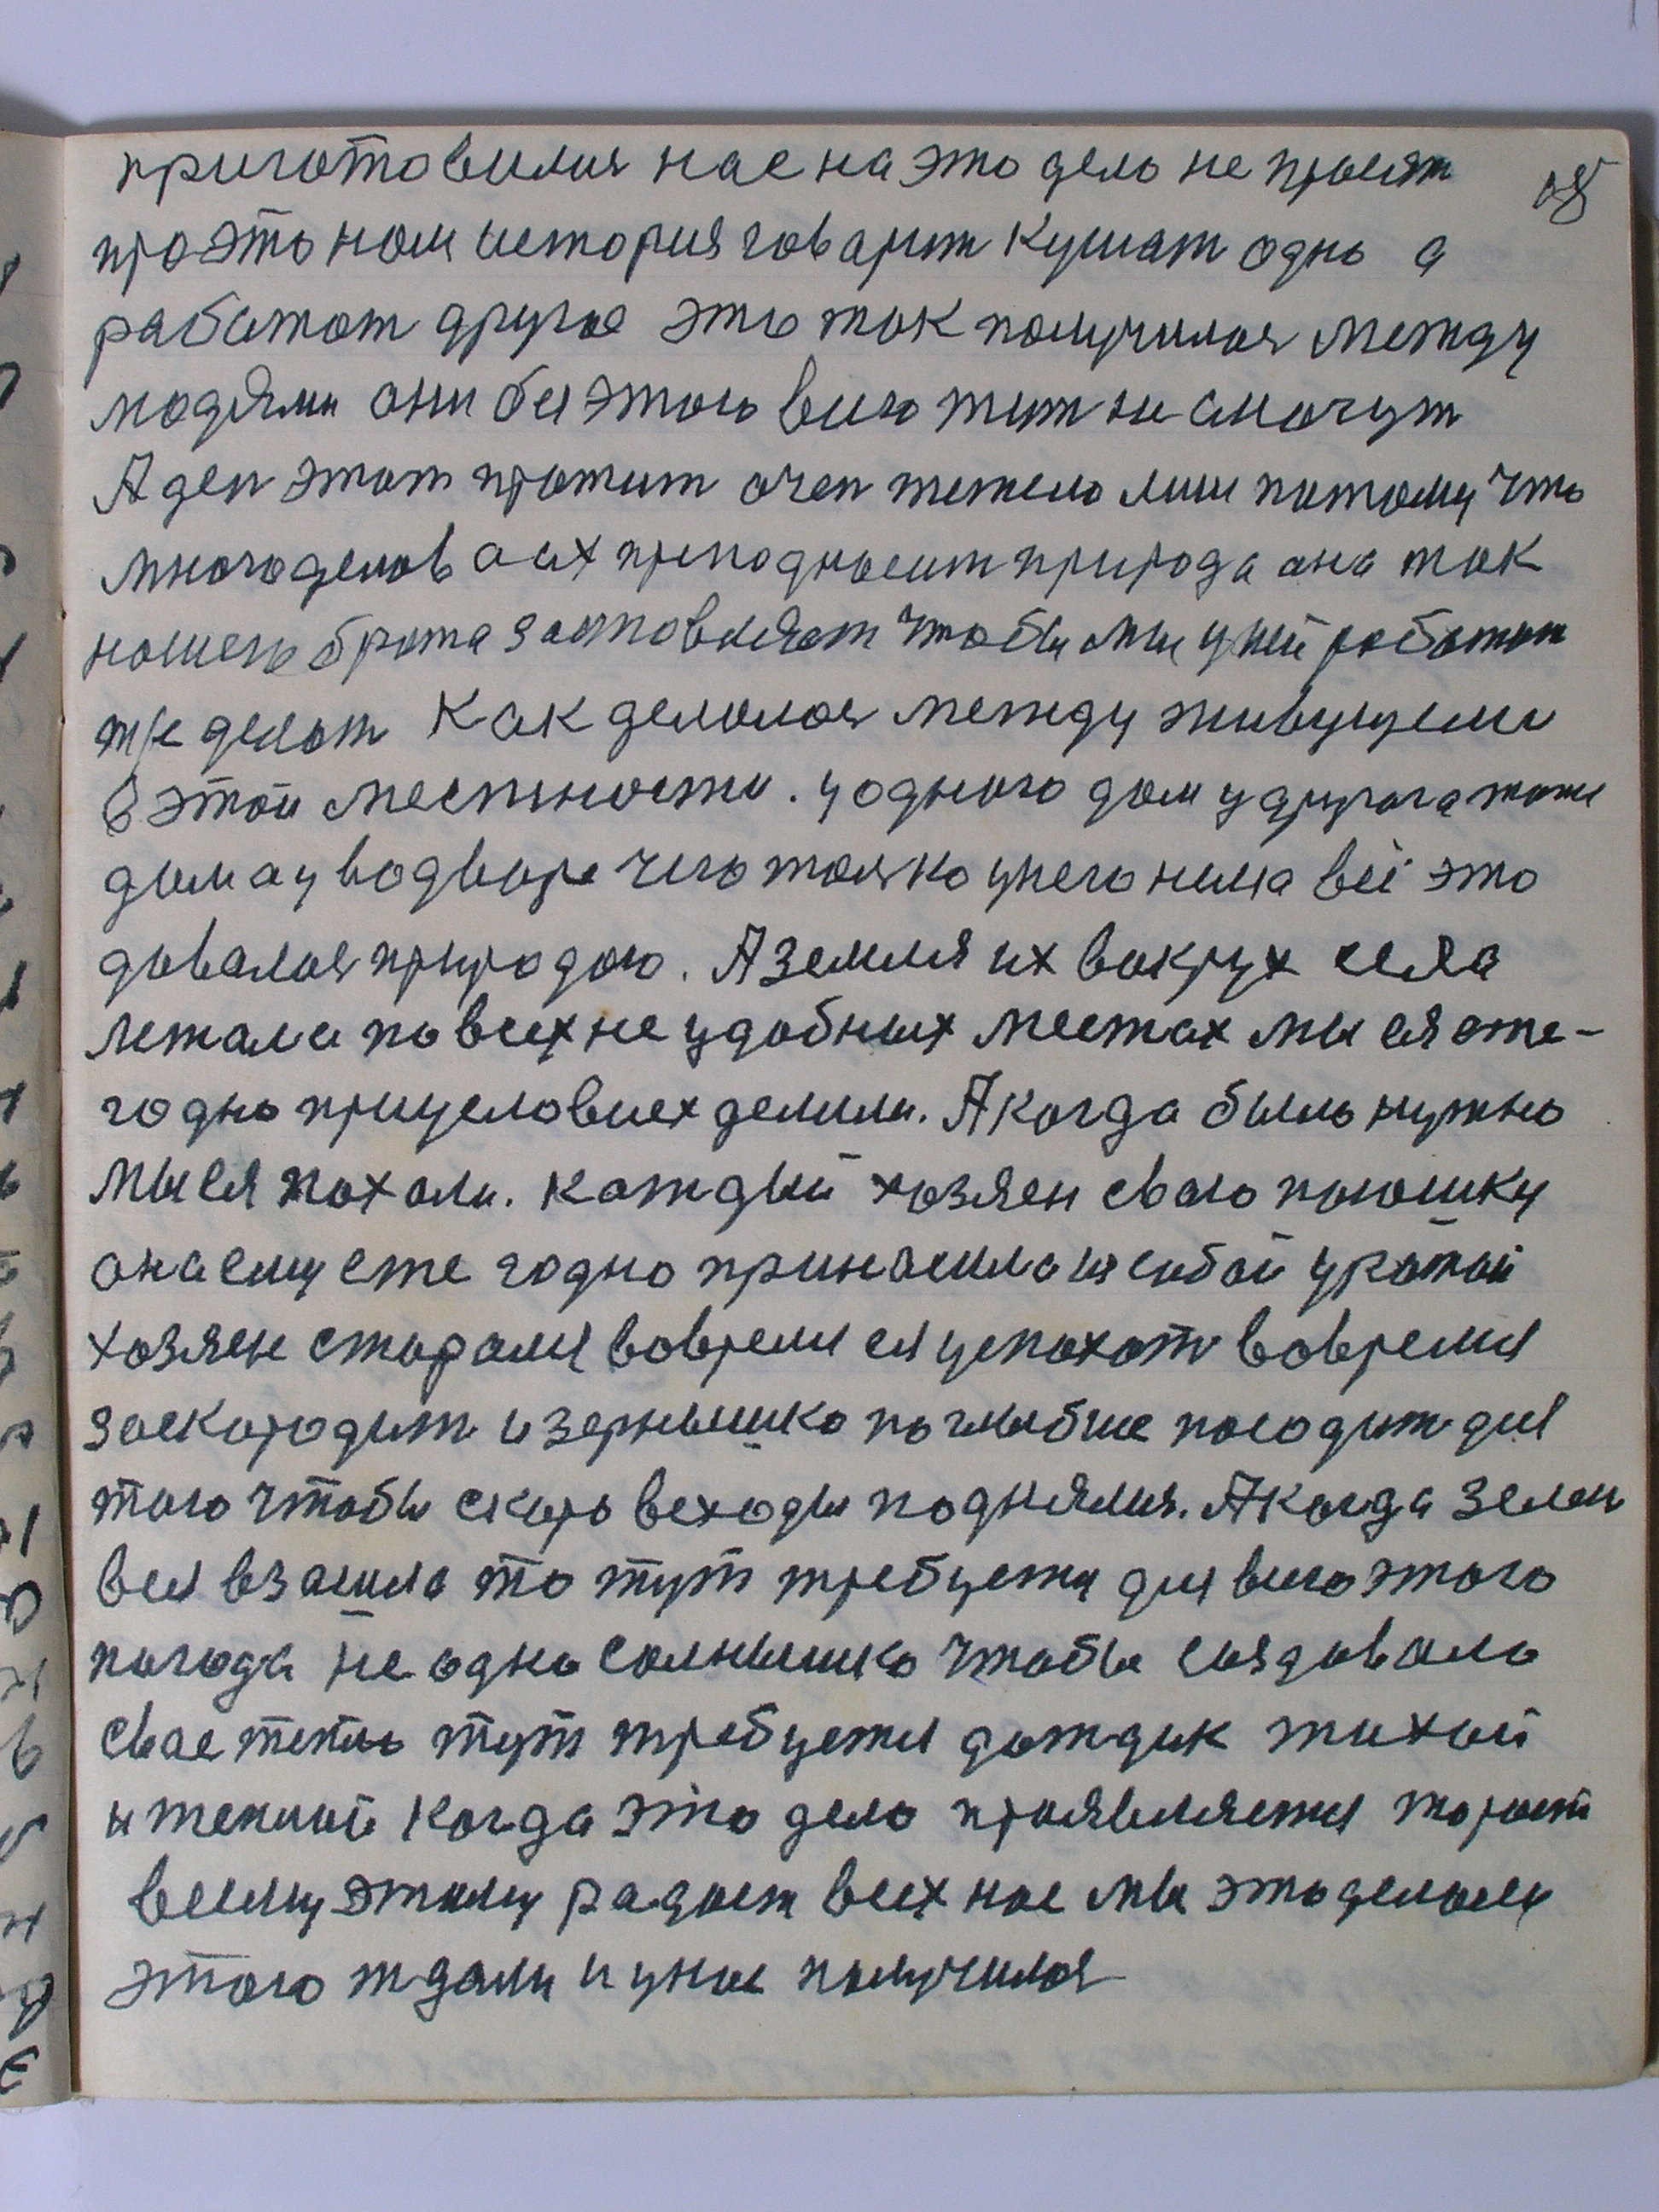 приготовился нас на это дело не просят
про это нам история говарит кушат одно а
работат другое это так получилося между
людями они без этого всего жит не смогут
А ден этот прожит очен тежело лиш потому что
много делов а их преподносит природа она так
нашего брата заставляет чтобы мы у ней работат
же делат Как делалося между живущеми
в этой местности. у одного дом у другога тоже
дом а у водворе чего толко у него нима всё это
давалося природою. А земля их вокрух села
лежала по всех не удобных местах мы ея еже-
годно прицеловсех делили. А когда было нужно
мы ея пахали. каждый хозяен сваю полоску
она ему еже годно приносила из собой урожай
хозяен старался вовремя ея успахат вовремя
заскородит и зернышко поглыбше посодит для
того чтобы скоро всходы поднялися. А когда зелен
вся взашла то тут требуется для всего этого
погода не одно солнышко чтобы создавало
свае тепло тут требуется дождик тихай
и теплай когда это дело проявляется то рост
всему этому радост всех нас мы это делали
этого ждали и у нас получилося